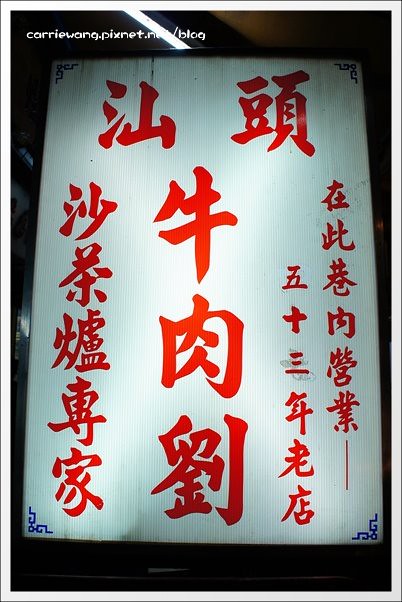 carriewang.pixnet.net/blog
汕頭
在此巷內營業——
五十三年老店
牛肉劉
沙茶爐專家